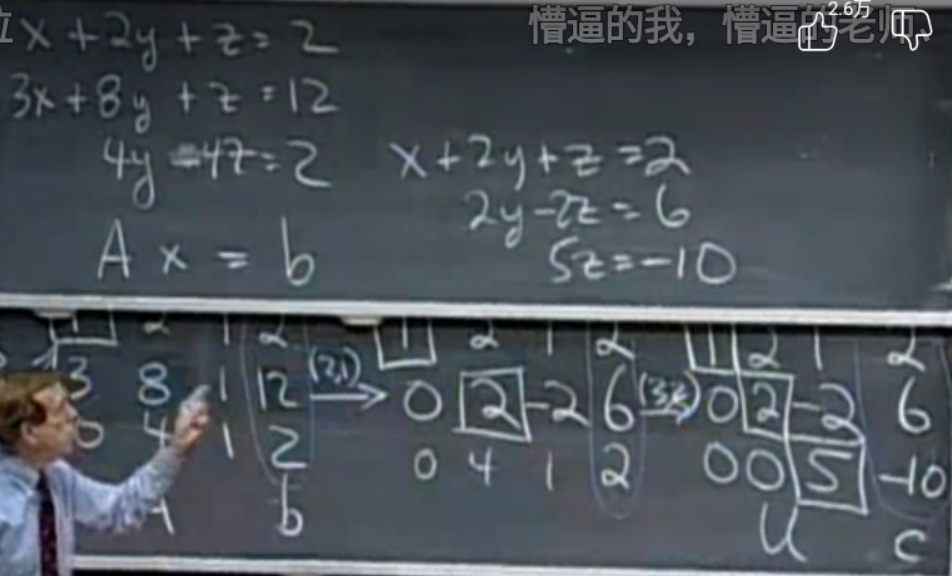 2.6万
懵逼的我，懵逼的老师
x + 2y + z = 2
3x + 8y + z = 12
4y - 4z = 2
A x = b
x + 2y + z = 2
2y - 2z = 6
5z = -10
1 2 1 2 1 2 1 2 1 2 1 2
3 8 1 12 (2,1) → 0 2 -2 6 (3,2) → 0 2 -2 6
0 4 1 2 0 4 1 2 0 0 5 -10
b U c